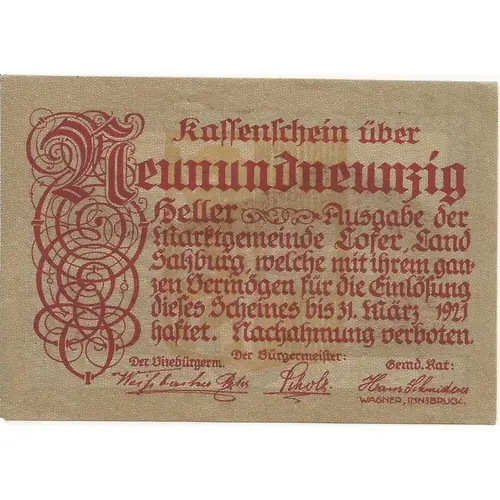 Kassenschein über
Neunundneunzig
Heller Ausgabe der
Marktgemeinde Lofer, Land
Salzburg, welche mit ihrem gan-
zen Vermögen für die Einlösung
dieses Scheines bis 31. März 1921
haftet. Nachahmung verboten.
Der Vizebürgerm. Der Bürgermeister: Gemd. Rat:
Hans Schmiderer
WAGNER, INNSBRUCK.